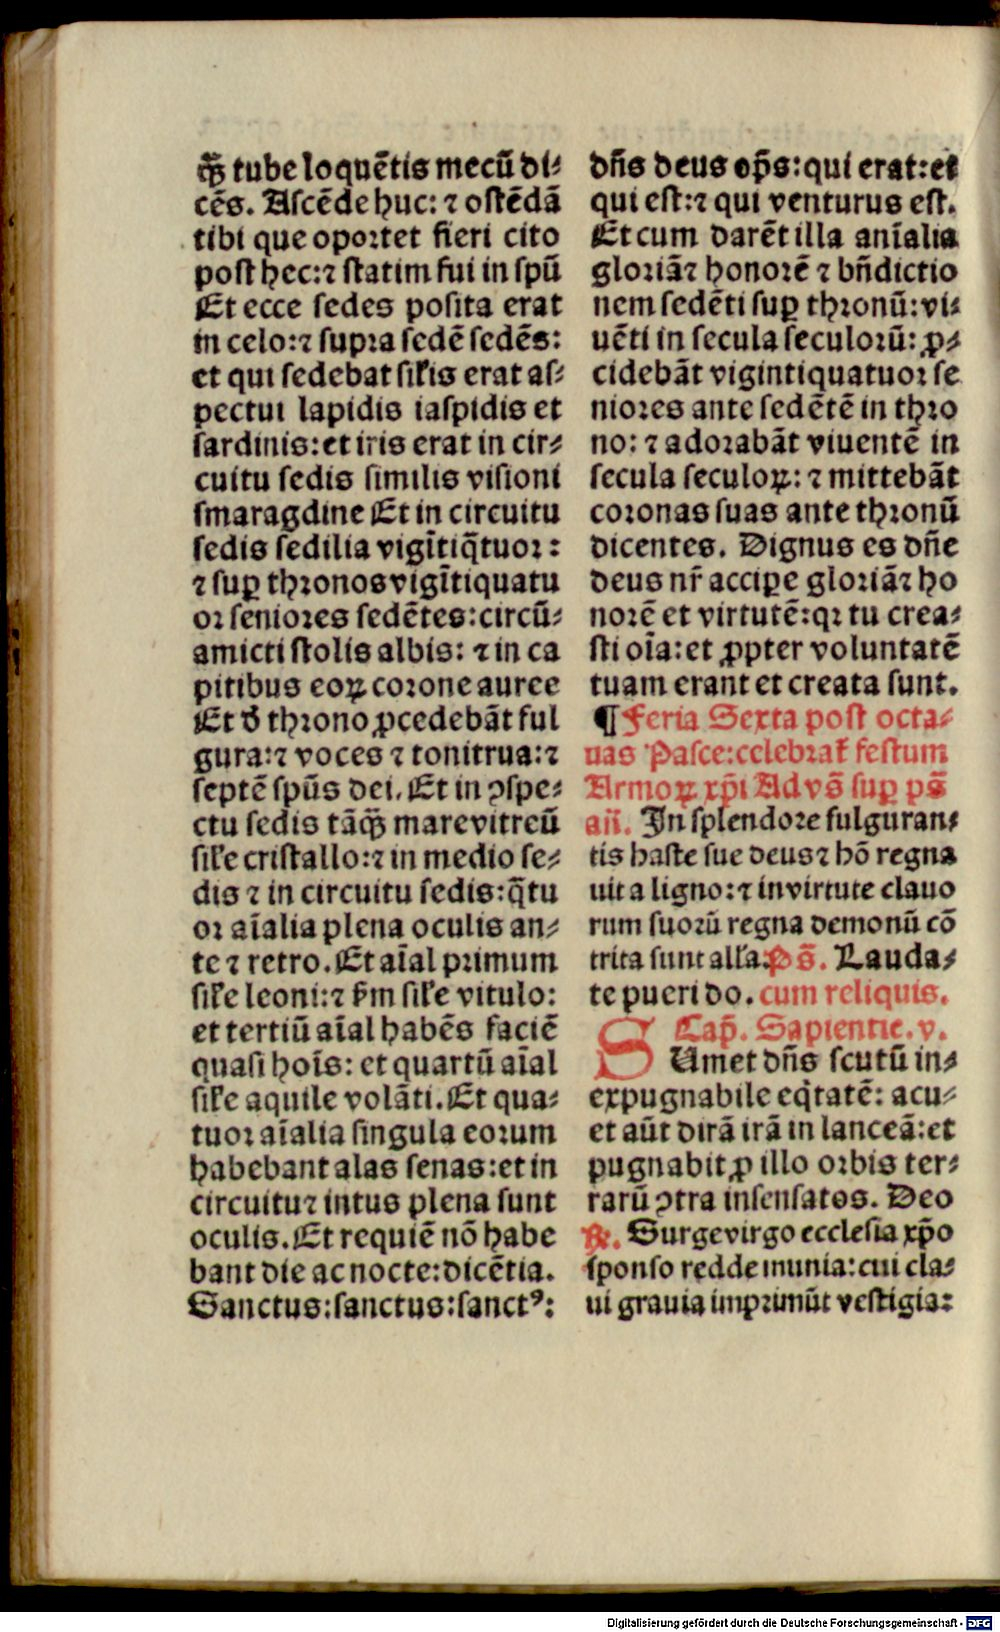 ꝙ̃ tube loquẽtis mecũ di⸗
cẽs. Ascẽde huc: ⁊ ostẽdã
tibi que oportet fieri cito
post hec: ⁊ statim fui in spũ
Et ecce sedes posita erat
in celo: ⁊ supra sedẽ sedẽs:
et qui sedebat siĺis erat as⸗
pectui lapidis iaspidis et
sardinis: et iris erat in cir⸗
cuitu sedis similis visioni
smaragdine Et in circuitu
sedis sedilia vigĩtiq̃tuor:
⁊ suꝑ thronos vigĩtiquatu
or seniores sedẽtes: circũ⸗
amicti stolis albis: ⁊ in ca
pitibus eoꝝ corone auree
Et đ throno ꝓcedebãt ful
gura: ⁊ voces ⁊ tonitrua: ⁊
septẽ spũs dei. Et in ꝯspe⸗
ctu sedis tãꝙ̃ mare vitreũ
siĺe cristallo: ⁊ in medio se⸗
dis ⁊ in circuitu sedis: q̃tu
or aĩalia plena oculis an⸗
te ⁊ retro. Et aĩal primum
siĺe leoni: ⁊ ẜm siĺe vitulo:
et tertiũ aĩal habẽs faciẽ
quasi hoĩs: et quartũ aĩal
siĺe aquile volãti. Et qua⸗
tuor aĩalia singula eorum
habebant alas senas: et in
circuitu ⁊ intus plena sunt
oculis. Et requiẽ nõ habe
bant die ac nocte: dicẽtia.
Sanctus: sanctus: sanctꝰ:
dñs deus op̃s: qui erat: et
qui est: ⁊ qui venturus est.
Et cum darẽt illa anĩalia
gloriã ⁊ honorẽ ⁊ bñdictio
nem sedẽti suꝑ thronũ: vi⸗
uẽti in secula seculorũ: ꝓ⸗
cidebãt vigintiquatuor se
niores ante sedẽtẽ in thro
no: ⁊ adorabãt viuentẽ in
secula seculoꝝ: ⁊ mittebãt
coronas suas ante thronũ
dicentes. Dignus es dñe
deus nr̃ acciꝑe gloriã ⁊ ho
norẽ et virtutẽ: qꝛ tu crea⸗
sti oĩa: et ꝓpter voluntatẽ
tuam erant et creata sunt.
¶ Feria Sexta post octa⸗
uas Pasce: celebrat̃ festum
Armoꝝ xp̃i Ad vs̃ suꝑ ps̃
añ. In splendore fulguran⸗
tis haste sue deus ⁊ hõ regna
uit a ligno: ⁊ in virtute clauo
rum suorũ regna demonũ cõ
trita sunt alĺa. Ps̃. Lauda⸗
te pueri do. cum reliquis.
Cap̃. Sapientie. v.
SUmet dñs scutũ in⸗
expugnabile eq̃tatẽ: acu⸗
et aũt dirã irã in lanceã: et
pugnabit ꝓ illo orbis ter⸗
rarũ ꝯtra insensatos. Deo
℟. Surge virgo ecclesia xp̃o
sponso redde munia: cui cla⸗
ui grauia imprimũt vestigia:
Digitalisierung gefördert durch die Deutsche Forschungsgemeinschaft - DFG